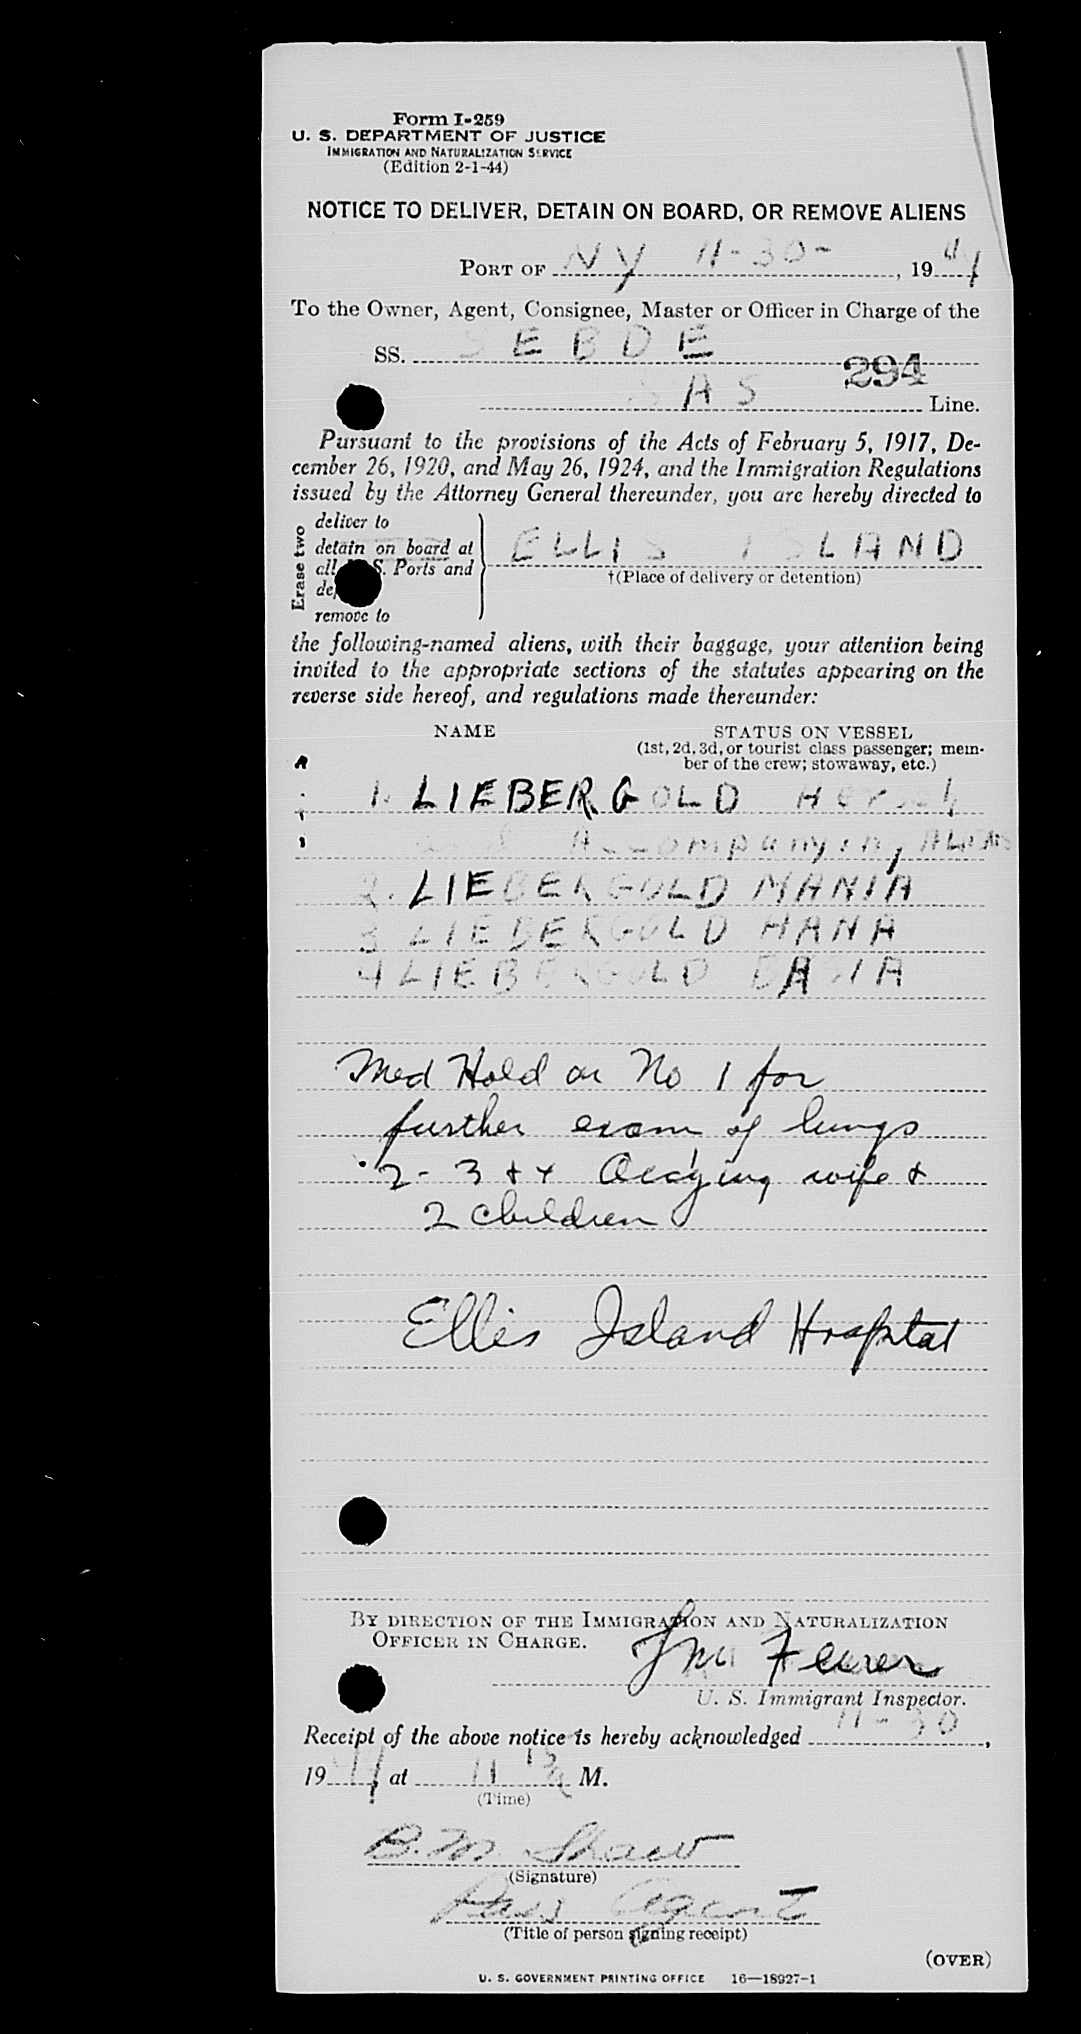 Form I-259
U. S. DEPARTMENT OF JUSTICE
IMMIGRATION AND NATURALIZATION SERVICE
(Edition 2-1-44)
NOTICE TO DELIVER, DETAIN ON BOARD, OR REMOVE ALIENS
PORT OF NY 11-30-, 19
To the Owner, Agent, Consignee, Master or Officer in Charge of the
SS. SEBDE
294
SAS Line.
Pursuant to the provisions of the Acts of February 5, 1917, De-
cember 26, 1920, and May 26, 1924, and the Immigration Regulations
issued by the Attorney General thereunder, you are hereby directed to
Erase two
deliver to
detain on board at
all U. S. Ports and
remove to
ELLIS ISLAND
†(Place of delivery or detention)
the following-named aliens, with their baggage, your attention being
invited to the appropriate sections of the statutes appearing on the
reverse side hereof, and regulations made thereunder:
NAME
STATUS ON VESSEL
(1st, 2d, 3d, or tourist class passenger; mem-
ber of the crew; stowaway, etc.)
1. LIEBERGOLD
and Accompanying ALIENS
2. LIEBERGOLD MANIA
3 LIEBERGOLD HANA
4 LIEBERGOLD
Med Hold on No 1 for
further exam of lungs
2 - 3 + 4 Acc'ying wife &
2 children
Ellis Island Hospital
BY DIRECTION OF THE IMMIGRATION AND NATURALIZATION
OFFICER IN CHARGE.
U. S. Immigrant Inspector.
Receipt of the above notice is hereby acknowledged 11-30,
19 , at 11 M.
(Time)
B. M. Shaw
(Signature)
Pass Agent
(Title of person signing receipt)
(OVER)
U. S. GOVERNMENT PRINTING OFFICE 16—18927-1